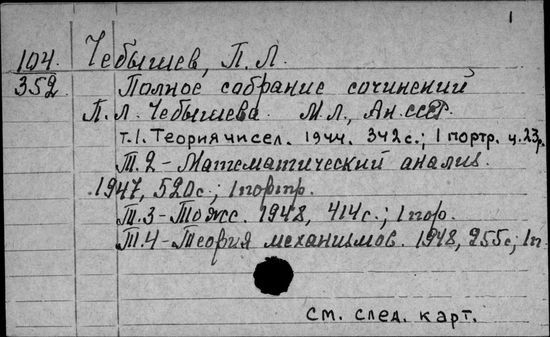 1
104. Чебышев, П. Л.
352 Полное собрание сочинений
П. Л. Чебышева. М.Л., Ан.ссср.
т.1. Теория чисел. 1944. 342 с.; 1 портр. ц. 23р.
Т.2 - Математический анализ.
1947, 520 с.; 1 портр.
Т.3 - Тоже. 1948, 414 с.; 1 пор.
Т.4 - Теория механизмов. 1948, 255 с; 1 п.
См. след. карт.